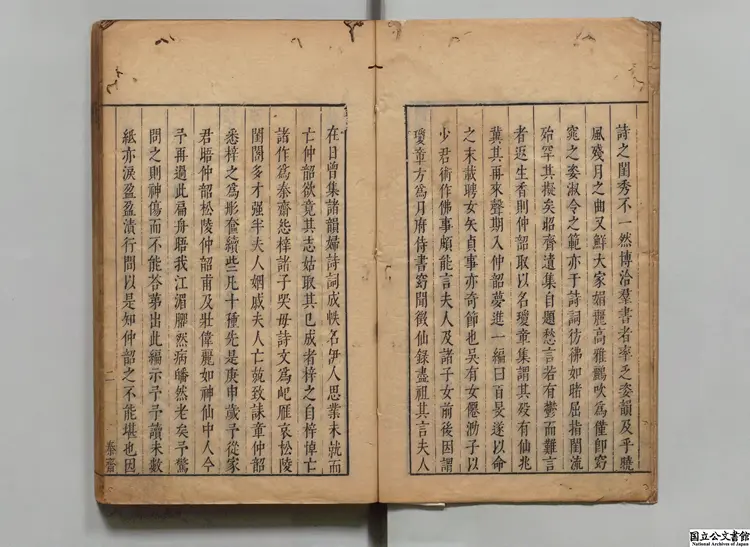 詩之閨秀不一然博洽羣書者率乏姿韻及乎曉
風殘月之曲又鮮大家媚麗高雅鸝吹爲僅卽窈
窕之姿淑令之範亦于詩詞彷彿如睹屈指閨流
殆罕其擬矣昭齊遺集自題愁言若有鬱而難言
者返生香則仲韶取以名瓊章集謂其殁有仙兆
冀其再來聲期入仲韶夢進一編曰百旻遂以命
之末載聘女矢貞事亦奇節也吳有女僊泐子以
少君術作佛事頗能言夫人及諸子女前後因謂
瓊章方爲月府侍書窈聞徵仙錄盡祖其言夫人
在日曾集諸韻婦詩詞成帙名伊人思業未就而
亡仲韶欲竟其志姑取其已成者梓之自梓悼亡
諸作爲秦齋怨梓諸子哭母詩文爲屺雁哀松陵
閨閤多才强半夫人姻戚夫人亡兢致誄章仲韶
悉梓之爲彤奩續些凡十種先是庚申歲予從家
君晤仲韶松陵仲韶甫及壯偉麗如神仙中人今
予再過此扁舟晤我江湄臞然病皤然老矣予驚
問之則神傷而不能荅苐出此編示予予讀未數
紙亦淚盈盈漬行間以是知仲韶之不能堪也因
二
秦齋
国立公文書館
National Archives of Japan